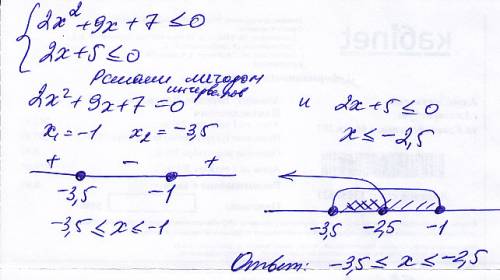 { 2x² + 9x + 7 ≤ 0
2x + 5 ≤ 0
Решаем методом
интервалов
2x² + 9x + 7 = 0 и 2x + 5 ≤ 0
x₁ = -1 x₂ = -3,5 x ≤ -2,5
+ - +
-3,5 -1
-3,5 -2,5 -1
-3,5 ≤ x ≤ -1
Ответ: -3,5 ≤ x ≤ -2,5